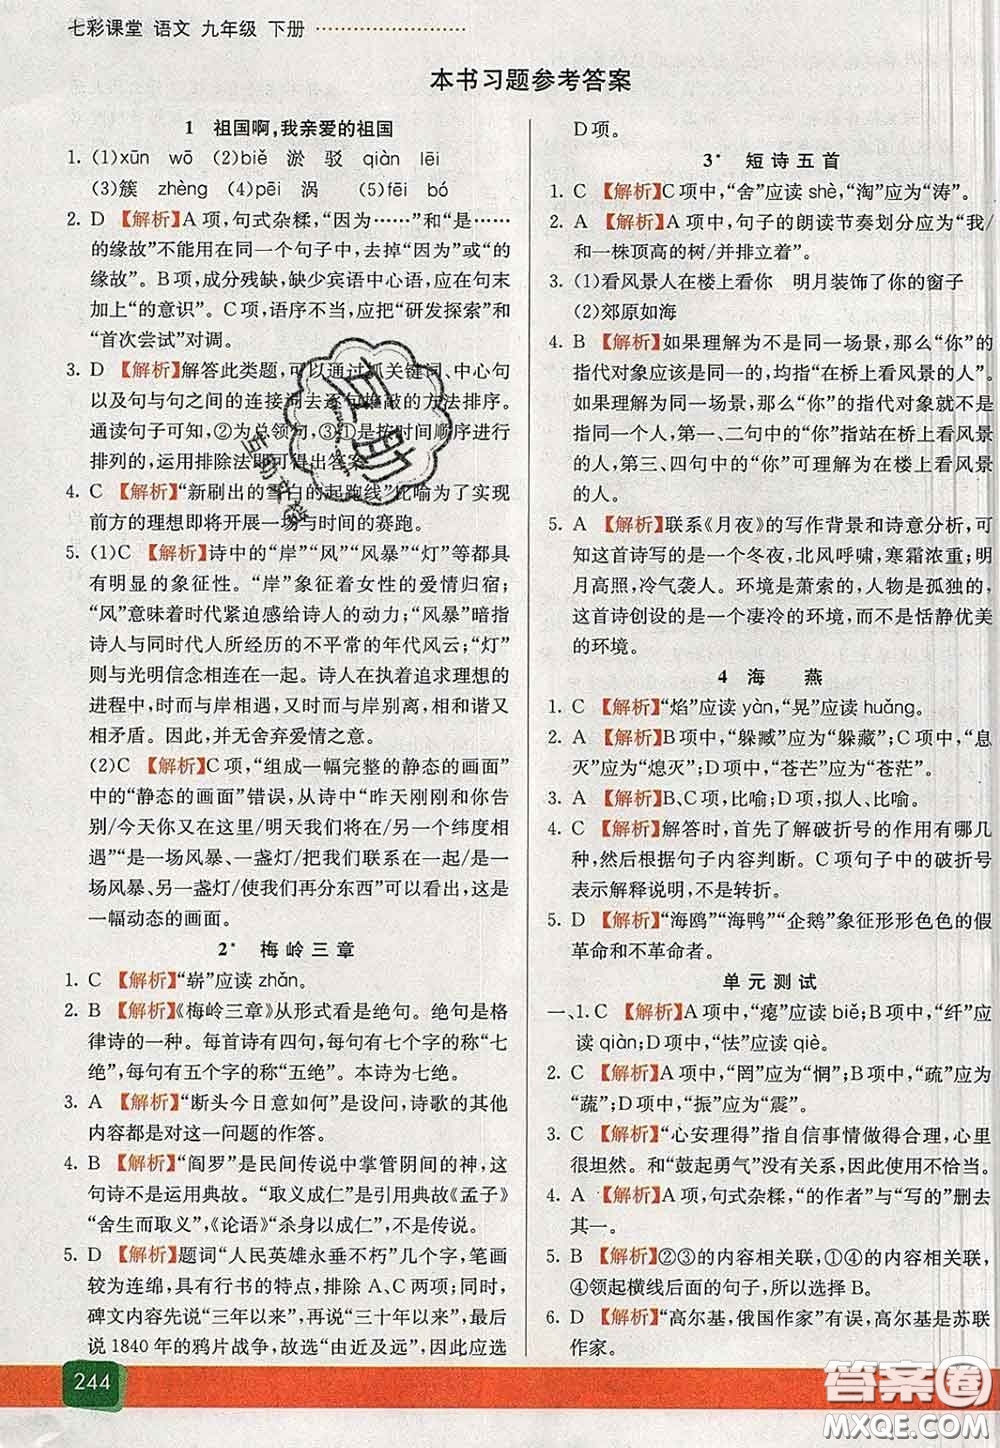 七彩课堂 语文 九年级 下册
本书习题参考答案
1 祖国啊,我亲爱的祖国
1. (1)xūn wō (2)biě 淤 驳 qiàn lēi
(3)簇 zhèng (4)pēi 涡 (5)fēi bó
2. D 【解析】A 项,句式杂糅,“因为……”和“是……
的缘故”不能用在同一个句子中,去掉“因为”或“的
缘故”。B 项,成分残缺,缺少宾语中心语,应在句末
加上“的意识”。C 项,语序不当,应把“研发探索”和
“首次尝试”对调。
3. D 【解析】解答此类题,可以通过抓关键词、中心句
以及句与句之间的连接词去逐句推敲的方法排序。
通读句子可知,②为总领句,③①是按照时间顺序进行
排列的,运用排除法即可得出答案。
4. C 【解析】“新刷出的雪白的起跑线”比喻为了实现
前方的理想即将开展一场与时间的赛跑。
5. (1)C 【解析】诗中的“岸”“风”“风暴”“灯”等都具
有明显的象征性。“岸”象征着女性的爱情归宿;
“风”意味着时代紧迫感给诗人的动力;“风暴”暗指
诗人与同时代人所经历的不平常的年代风云;“灯”
则与光明信念相连在一起。诗人在执着追求理想的
进程中,时而与亲人相遇,时而与亲人离别,两者互
相矛盾。并无舍弃爱情之意。
(2)C 【解析】C 项,“组成一幅完整的静态的画面”
中“静态的画面”错误,从诗中“昨天刚刚和你告
别/今天你又在这里出现/明天我们将在另一个纬度相
遇”“是一场风暴、一盏灯/把我们联系在一起/是一
场风暴、另一盏灯/使我们再分东西”可以看出,这是
一幅动态的画面。
2* 梅岭三章
1. C 【解析】“崭”应读 zhǎn。
2. B 【解析】《梅岭三章》从形式看是绝句。绝句是格
律诗的一种。每首诗有四句,每句有七个字的为“七
绝”,每句有五个字的为“五绝”。本诗为七绝。
3. A 【解析】“断头今日意如何”是设问,诗歌的其他
内容都是对这一问题的作答。
4. B 【解析】“阎罗”是民间传说中掌管阴间的神,这
句诗不是运用典故。“取义成仁”是引用典故《孟子》
“舍生而取义”,《论语》“杀身以成仁”,不是传说。
5. D 【解析】题词“人民英雄永垂不朽”几个字,笔画
较为连绵,具有行书的特点,排除 A、C 两项;同时,
碑文内容先说“三年以来”,再说“三十年以来”,最后
说 1840 年的鸦片战争,故“由近及远”,因此应选
D 项。
3* 短诗五首
1. C 【解析】C 项中,“舍”应读 shè,“淘”应为“涛”。
2. A 【解析】A 项中,句子的朗读节奏划分应为“我/
和一株顶高的树/并排立着”。
3. (1)看风景人在楼上看你 明月装饰了你的窗子
(2)郊原如海
4. B 【解析】如果理解为不同一场景,那么“你”的
指代对象应该是同一的,均指“在桥上看风景的人”。
如果理解为同一场景,那么“你”的指代对象就不是
同一个人,第一、二句中的“你”指站在桥上看风景
的人,第三、四句中的“你”可理解为在楼上看风景
的人。
5. A 【解析】联系《月夜》的写作背景和诗意分析,可
知这首诗写的是一个冬夜,北风呼啸,寒霜浓重;明
月高照,冷气袭人。环境是萧索的,人物是孤独的,
这首诗创设的是一个凄冷的环境,而不是恬静优美
的环境。
4 海 燕
1. C 【解析】“焰”应读 yàn,“晃”应读 huǎng。
2. A 【解析】A 项中,“躲臧”应为“躲藏”;C 项中,“息
灭”应为“熄灭”;D 项中,“苍芒”应为“苍茫”。
3. A 【解析】B、C 项,比喻;D 项,拟人、比喻。
4. C 【解析】解答时,首先了解破折号的作用有哪几
种,然后根据句子内容判断。C 项句子中的破折号
表示解释说明,不是转折。
5. D 【解析】“海鸥”“海鸭”“企鹅”象征形形色色的假
革命和不革命者。
单元测试
一、1. C 【解析】A 项中,“瘪”应读 biě;B 项中,“纤”应
读 qiàn;D 项中,“怯”应读 qiè。
2. C 【解析】A 项中,“罔”应为“惘”;B 项中,“疏”应为
“蔬”;D 项中,“振”应为“震”。
3. C 【解析】“心安理得”指自信事情做得合理,心里
很坦然。和“鼓起勇气”没有关系,因此使用不当。
4. A 【解析】A 项,句式杂糅,“的作者”与“写的”删去
其一。
5. B 【解析】②③的内容相关联,①④的内容相关联,
④领起横线后面的句子,所以选择 B。
6. D 【解析】“高尔基,俄国作家”有误,高尔基是苏联
作家。
244
答案圈
MXQE.COM